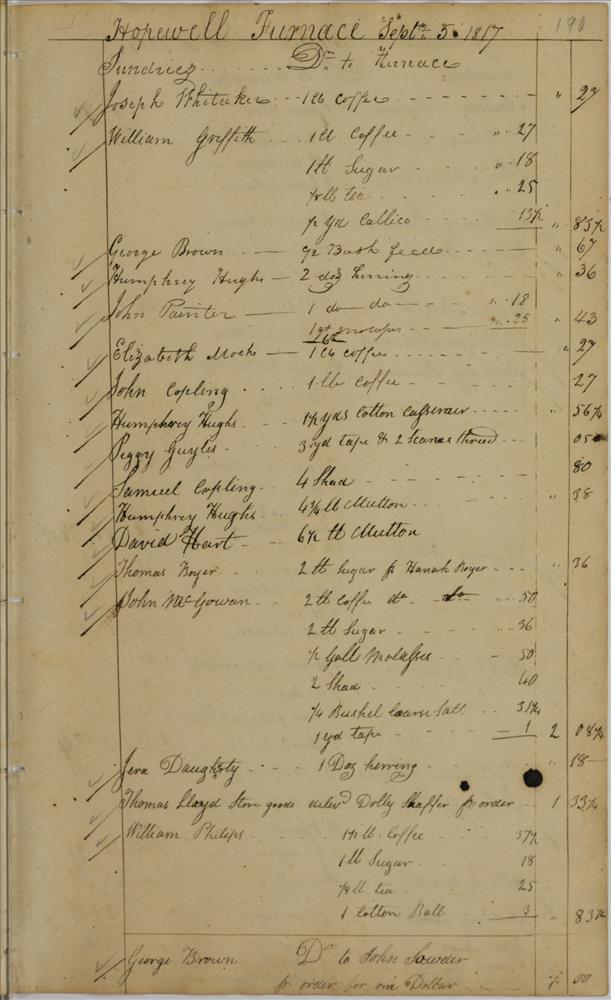 190
Hopewell Furnace Septr. 5. 1817
Sundries . . . . . . . Dr. to Furnace
Joseph Whitaker — 1 lb Coffee - - - - - - " 27
William Griffith — 1 lb Coffee - - " 27
1 lb Sugar - - " 18
1/8 lb tea - - " 25
1/2 yd Callico - - 13 1/2 " 83 1/2
George Brown — Bush feed - - - " 67
Humphrey Hughs — 2 doz herring - - - " 36
John Painter — 1 do do — " 18
1 qt - - " 25 " 43
Elizabeth Mock — 1 lb Coffee - - - " 27
John Copling . . . 1 lb Coffee - - 27
Humphrey Hughs - - 1 1/2 yds Cotton - - - " 56 1/4
Peggy Guyles - - 3 yd tape & 2 thread - - - 05
Samuel Copling - - 4 Shad - - - - 80
Humphrey Hughs - - 4 3/4 lb Mutton - - - " 38
David Hart — 6 1/2 lb Mutton
Thomas Boyer - - 2 lb Sugar pr Hanah Boyer - - - " 36
John McGowan - - 2 lb Coffee do - do - " 50
2 lb Sugar - - " 36
1/2 Gall Molasses - - 50
2 Shad - - 40
1/4 Bushel Coarse Salt - - 31 1/4
1 yd tape - - 1 2 08 1/4
Daugherty - - - 1 Doz herring - - - " 18
Thomas Lloyd Store goods delivd Dolly Shaffer pr order - - 1 33 1/4
William Philips - - - 1 1/2 lb Coffee - - 37 1/2
1 lb Sugar - - 18
1/8 lb tea - - 25
1 Cotton Ball - - 3 " 83 1/2
George Brown Dr. to John Sowder
pr order for one Dollar - - 1. 00